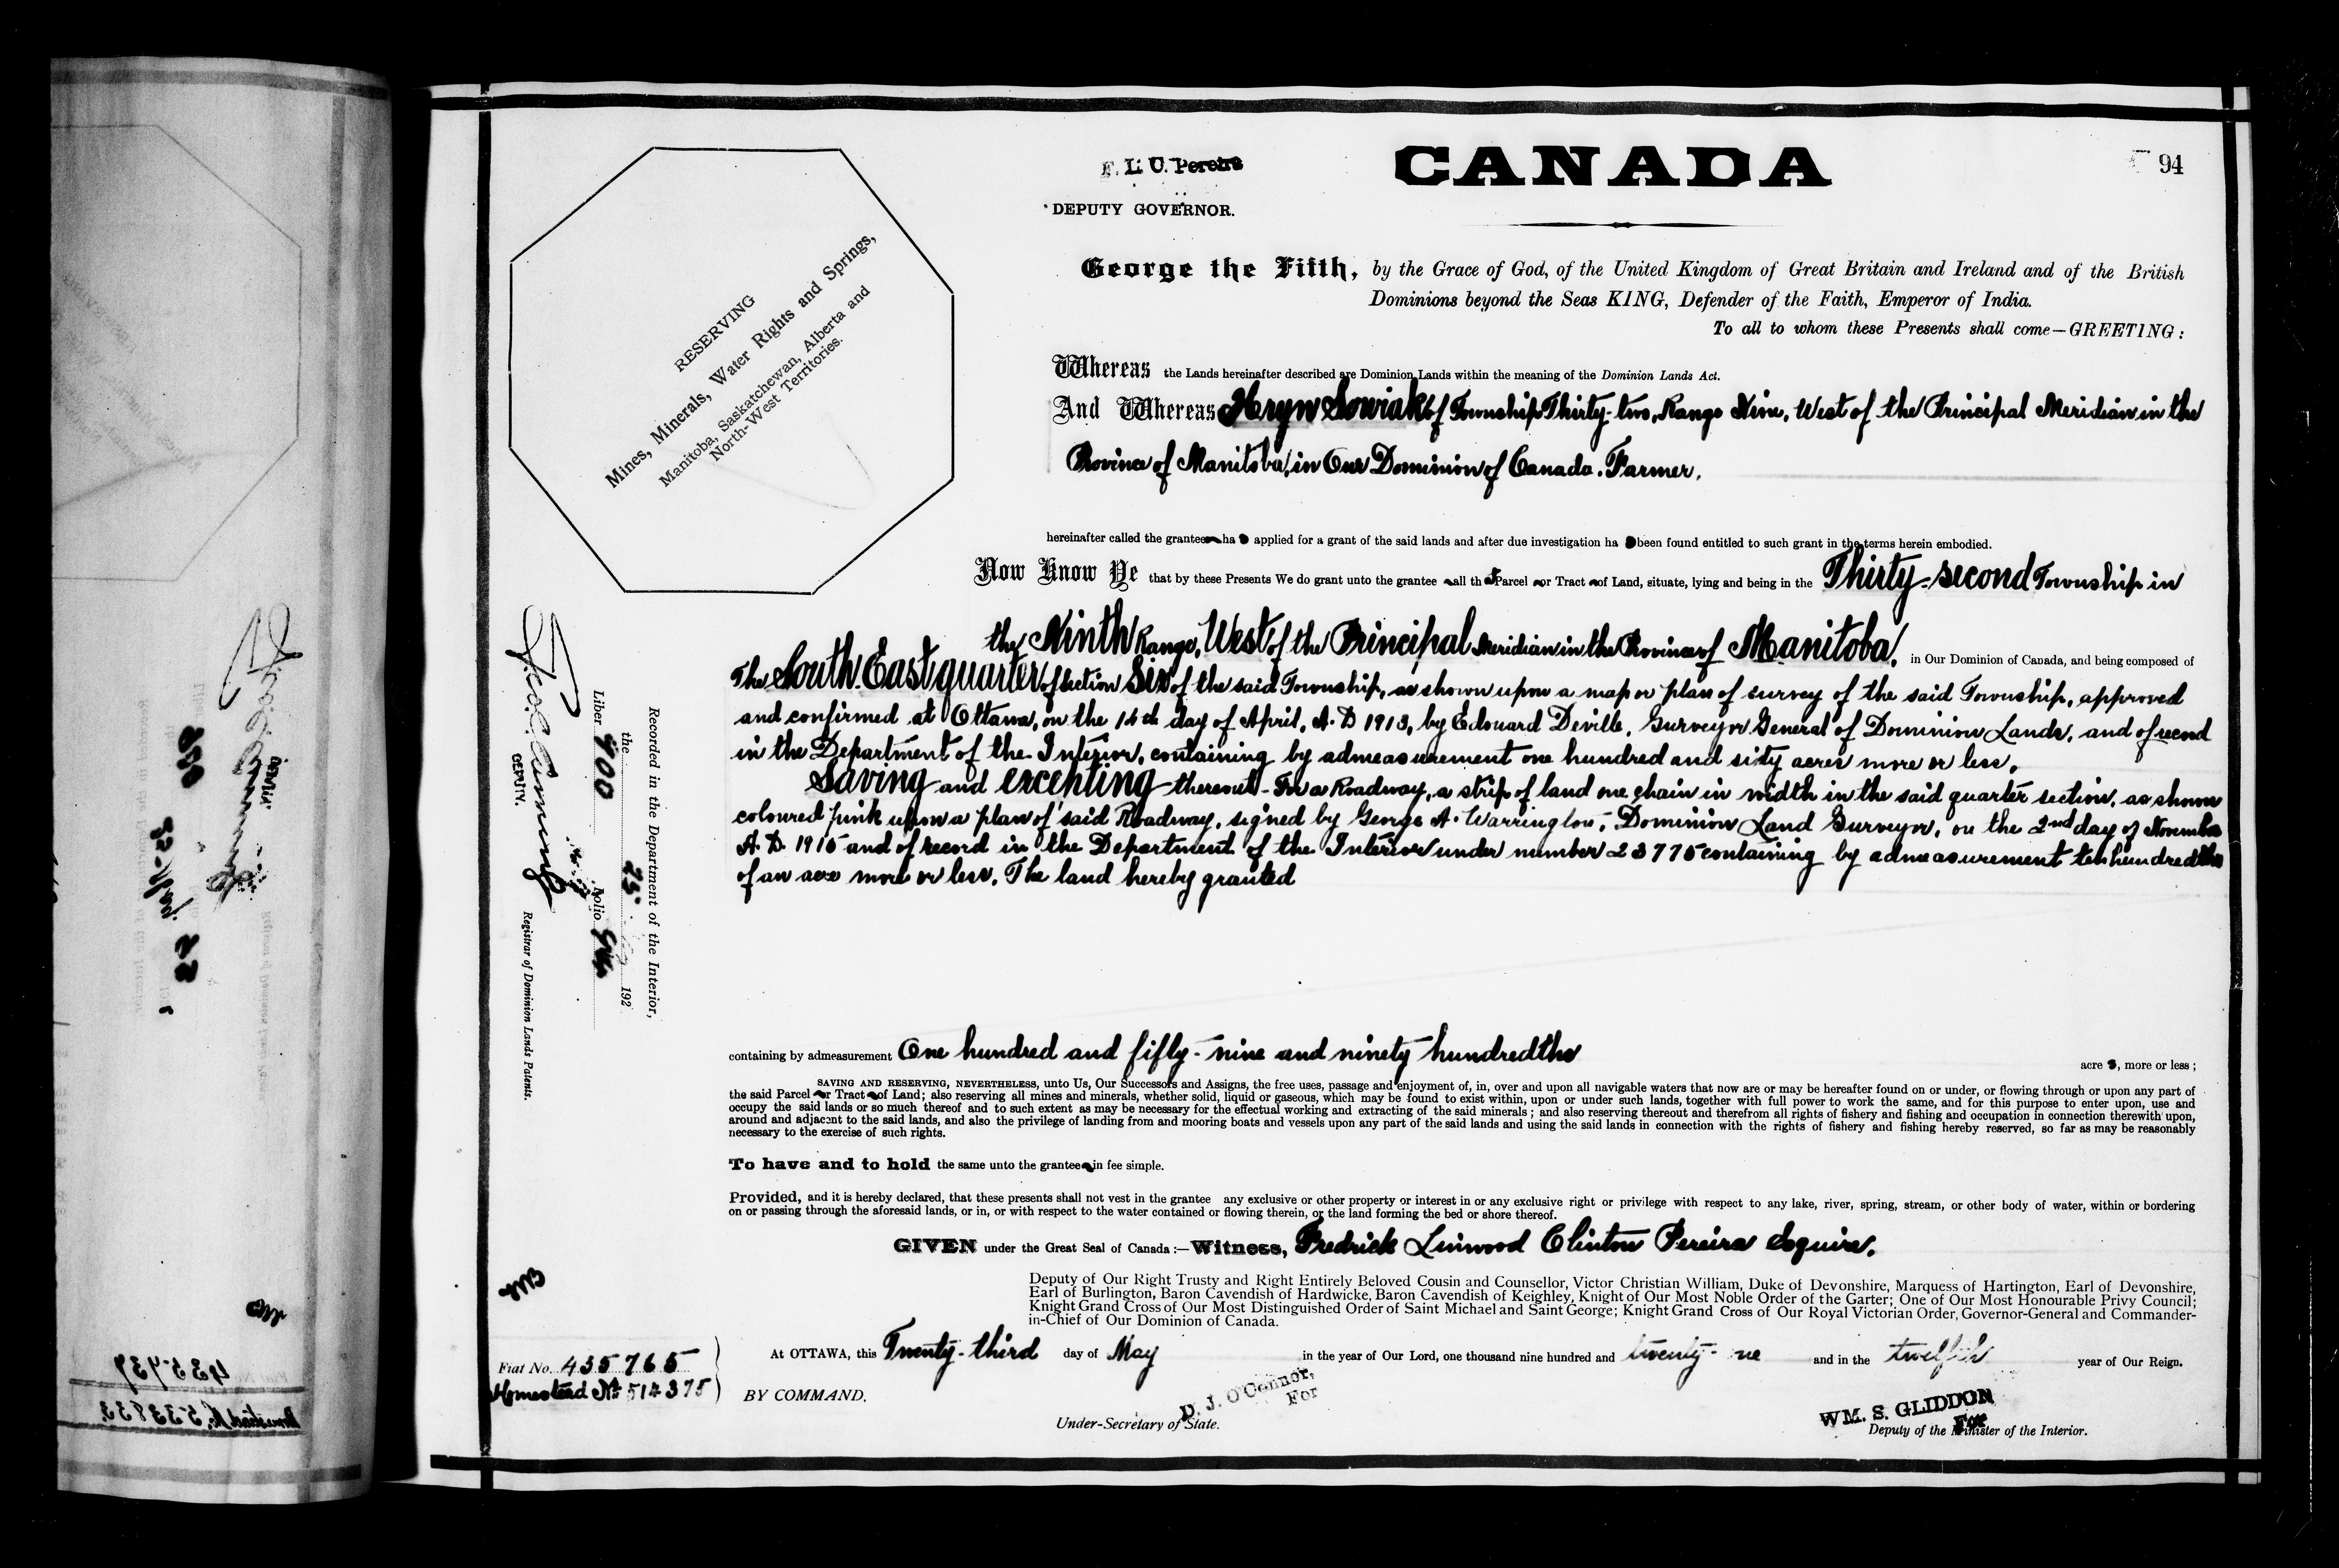 F. L. C. Pereira
DEPUTY GOVERNOR.
CANADA
94
RESERVING
Mines, Minerals, Water Rights and Springs,
Manitoba, Saskatchewan, Alberta and
North-West Territories.
George the Fifth, by the Grace of God, of the United Kingdom of Great Britain and Ireland and of the British
Dominions beyond the Seas KING, Defender of the Faith, Emperor of India.
To all to whom these Presents shall come—GREETING:
Whereas the Lands hereinafter described are Dominion Lands within the meaning of the Dominion Lands Act.
And Whereas Hryn Sowiak of Township Thirty-two, Range Nine, West of the Principal Meridian in the
Province of Manitoba, in Our Dominion of Canada. Farmer.
hereinafter called the grantee ha s applied for a grant of the said lands and after due investigation ha s been found entitled to such grant in the terms herein embodied.
Now Know Ye that by these Presents We do grant unto the grantee all th at Parcel or Tract of Land, situate, lying and being in the Thirty-second Township in
the Ninth Range, West of the Principal Meridian in the Province of Manitoba, in Our Dominion of Canada, and being composed of
The South East quarter of Section Six of the said Township, as shown upon a map or plan of survey of the said Township, approved
and confirmed at Ottawa, on the 14th day of April, A.D 1913, by Edouard Deville, Surveyor General of Dominion Lands, and of record
in the Department of the Interior, containing by admeasurement one hundred and sixty acres more or less.
Saving and excepting thereout - For a Roadway, a strip of land one chain in width in the said quarter section, as shown
coloured pink upon a plan of said Roadway, signed by George A. Warrington, Dominion Land Surveyor, on the 2nd day of November
A.D. 1915 and of record in the Department of the Interior under number 23775 containing by admeasurement ten hundredths
of an acre more or less. The land hereby granted
containing by admeasurement One hundred and fifty-nine and ninety hundredths acre s, more or less;
SAVING AND RESERVING, NEVERTHELESS, unto Us, Our Successors and Assigns, the free uses, passage and enjoyment of, in, over and upon all navigable waters that now are or may be hereafter found on or under, or flowing through or upon any part of
the said Parcel or Tract of Land; also reserving all mines and minerals, whether solid, liquid or gaseous, which may be found to exist within, upon or under such lands, together with full power to work the same, and for this purpose to enter upon, use and
occupy the said lands or so much thereof and to such extent as may be necessary for the effectual working and extracting of the said minerals; and also reserving thereout and therefrom all rights of fishery and fishing and occupation in connection therewith upon,
around and adjacent to the said lands, and also the privilege of landing from and mooring boats and vessels upon any part of the said lands and using the said lands in connection with the rights of fishery and fishing hereby reserved, so far as may be reasonably
necessary to the exercise of such rights.
To have and to hold the same unto the grantee in fee simple.
Provided, and it is hereby declared, that these presents shall not vest in the grantee any exclusive or other property or interest in or any exclusive right or privilege with respect to any lake, river, spring, stream, or other body of water, within or bordering
on or passing through the aforesaid lands, or in, or with respect to the water contained or flowing therein, or the land forming the bed or shore thereof.
GIVEN under the Great Seal of Canada:—Witness, Fredrick Linwood Clinton Pereira Esquire.
Deputy of Our Right Trusty and Right Entirely Beloved Cousin and Counsellor, Victor Christian William, Duke of Devonshire, Marquess of Hartington, Earl of Devonshire,
Earl of Burlington, Baron Cavendish of Hardwicke, Baron Cavendish of Keighley, Knight of Our Most Noble Order of the Garter; One of Our Most Honourable Privy Council;
Knight Grand Cross of Our Most Distinguished Order of Saint Michael and Saint George; Knight Grand Cross of Our Royal Victorian Order, Governor-General and Commander-
in-Chief of Our Dominion of Canada.
At OTTAWA, this Twenty-third day of May in the year of Our Lord, one thousand nine hundred and twenty- ne and in the twelfth year of Our Reign.
BY COMMAND.
D. J. O'Connor,
For
Under-Secretary of State.
WM. S. GLIDDON
For
Deputy of the Minister of the Interior.
Fiat No. 435765
Homestead No. 514375
Recorded in the Department of the Interior,
the 25 192
Liber 400 Folio 94
DEPUTY.
Registrar of Dominion Lands Patents.